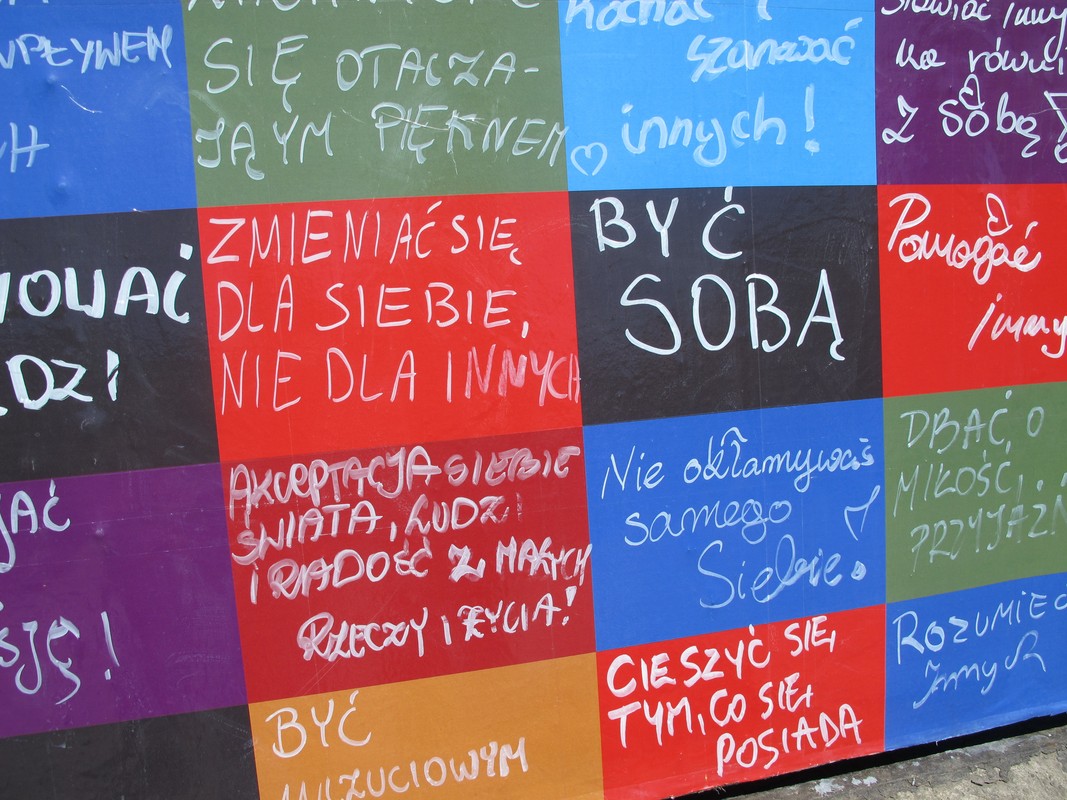 WPŁYWEM
SIĘ OTACZA-
JĄYM PIĘKNEM
Kochać i
szanować
innych!
innych
na równi
z sobą
ZMIENIAĆ SIĘ
DLA SIEBIE,
NIE DLA INNYCH
BYĆ
SOBĄ
Pomogać
innym
AKCEPTACJA SIEBIE
ŚWIATA, LUDZI
I RADOŚĆ Z MAŁYCH
RZECZY I ŻYCIA!
Nie okłamywać
samego
Siebie.
DBAĆ O
MIŁOŚĆ,
PRZYJAŹŃ
BYĆ
CIESZYĆ SIĘ,
TYM, CO SIĘ,
POSIADA
ROZUMIEĆ
Innych